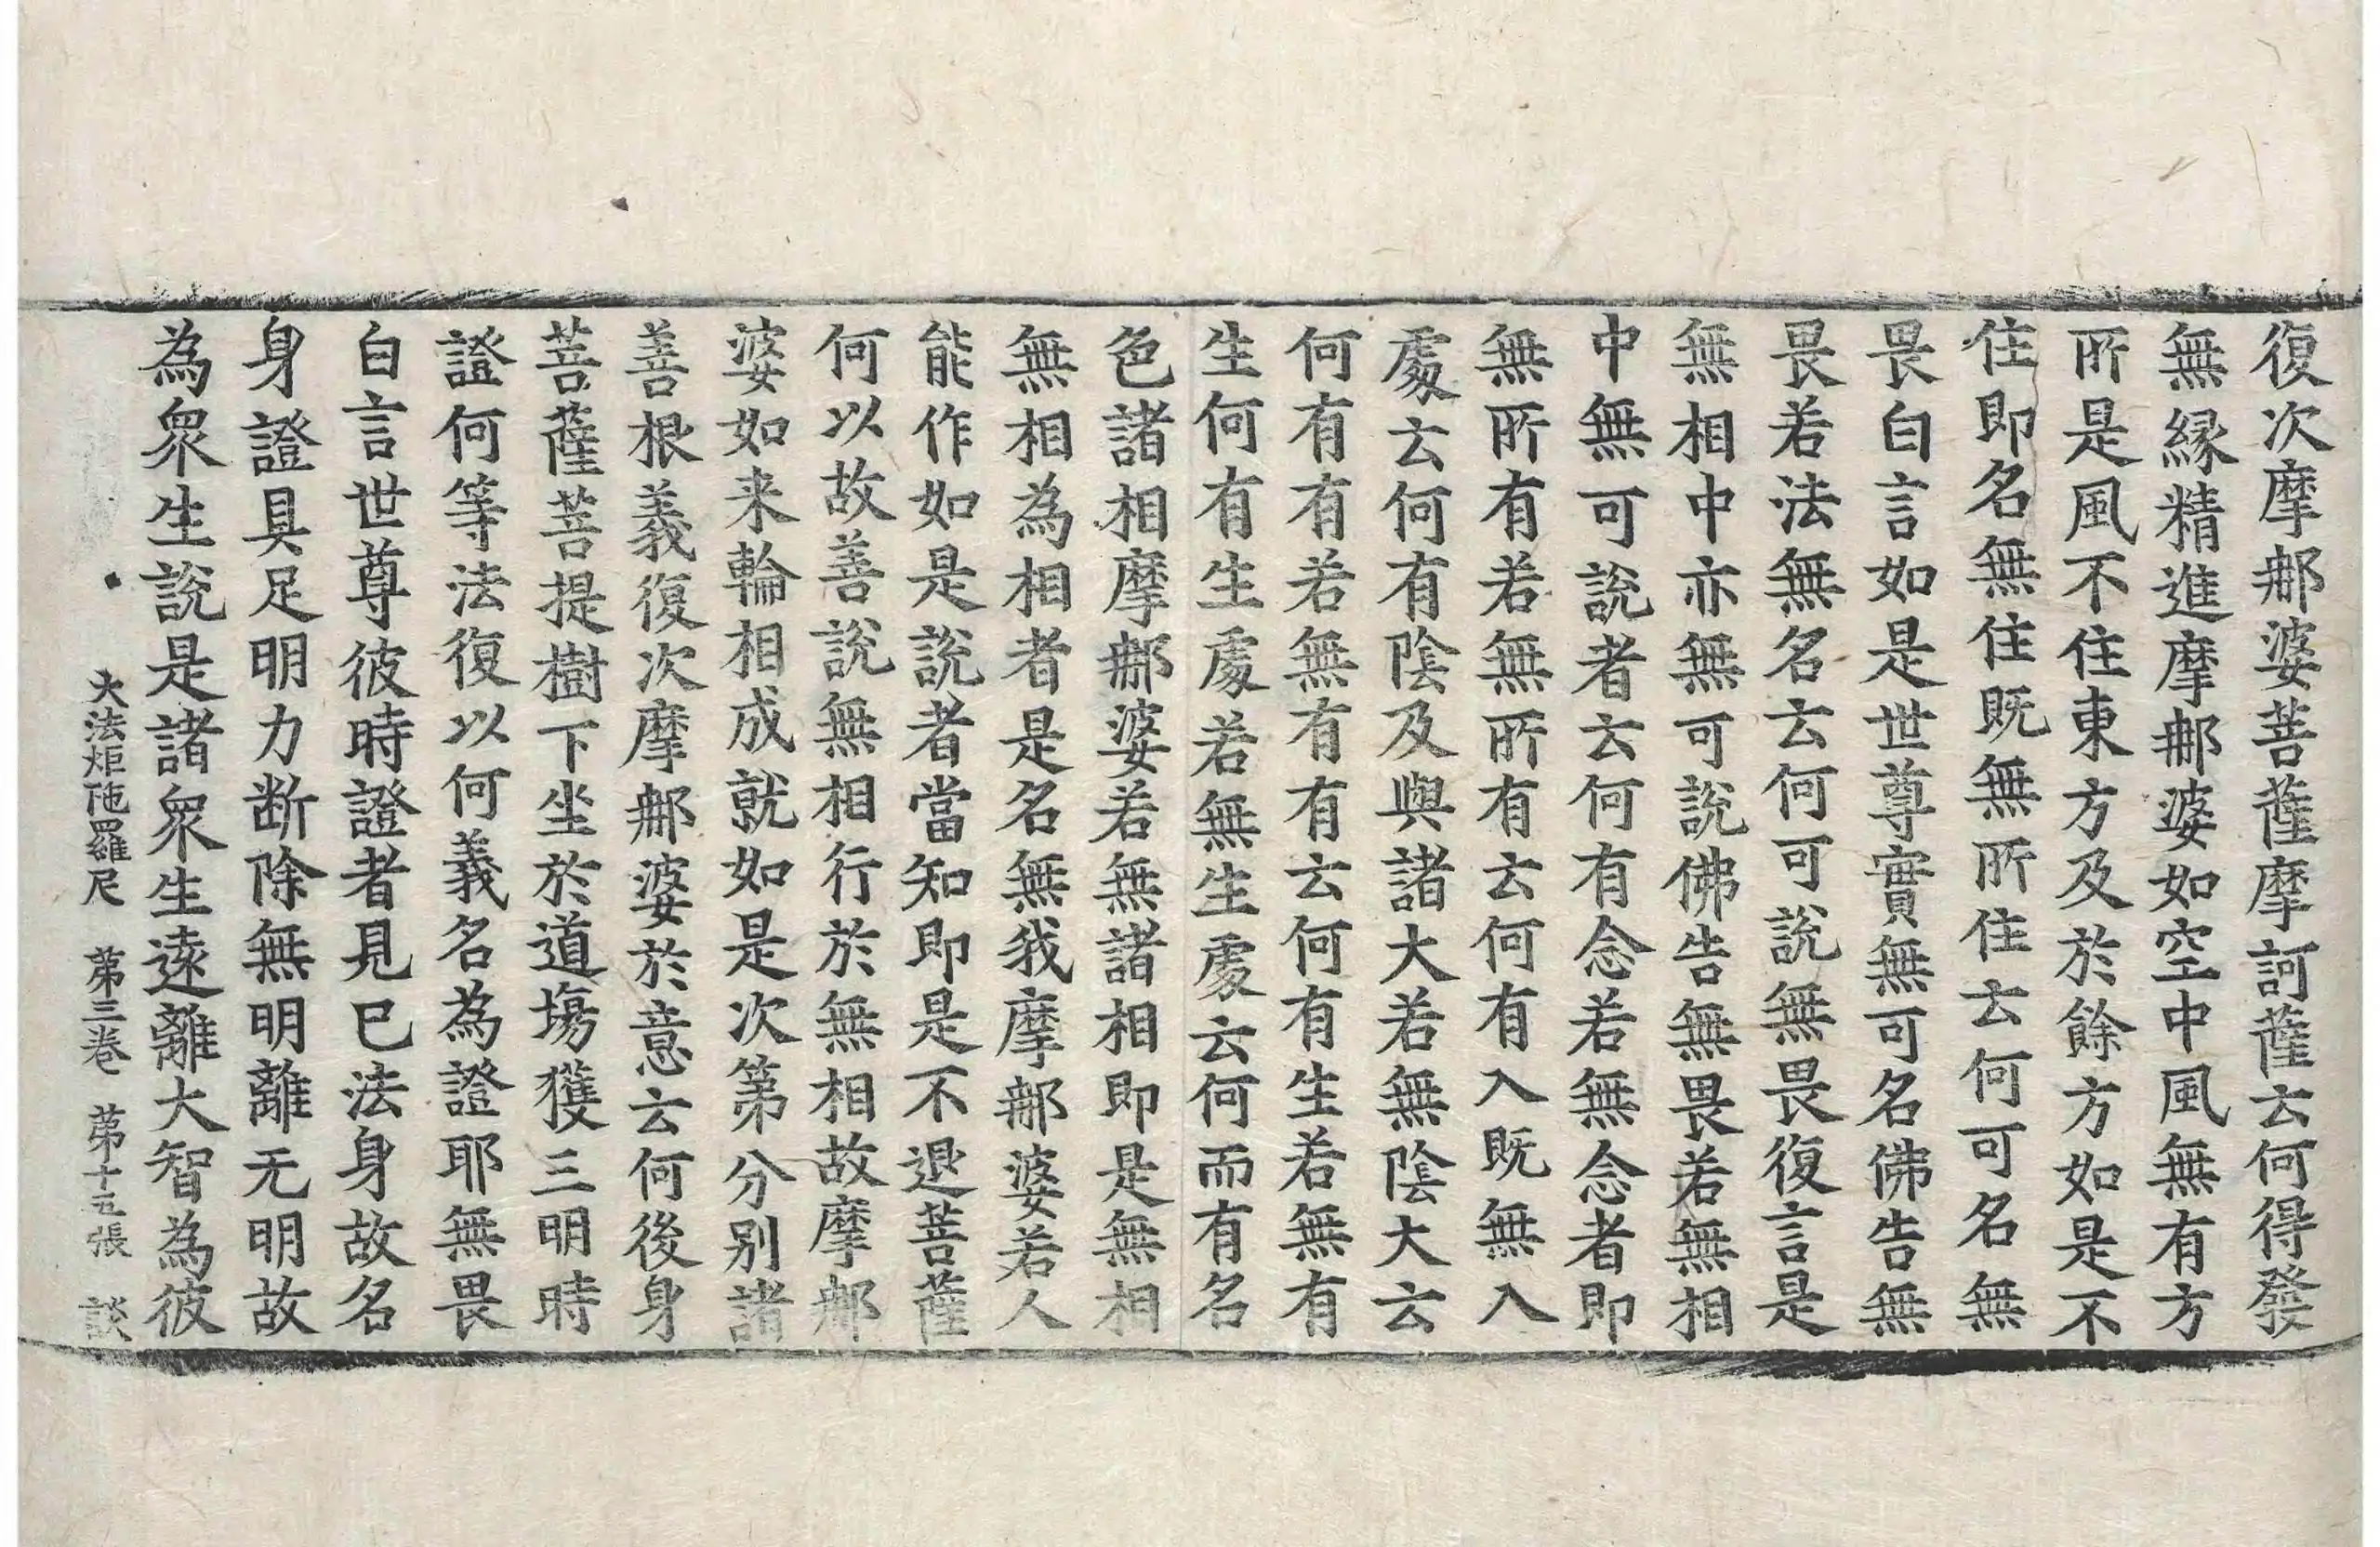 復次摩䣯婆菩薩摩訶薩云何得發
無縁精進摩䣯婆如空中風無有方
所是風不住東方及於餘方如是不
住即名無住既無所住云何可名無
畏白言如是世尊實無可名佛告無
畏若法無名云何可說無畏復言是
無相中亦無可說佛告無畏若無相
中無可說者云何有念若無念者即
無所有若無所有云何有入既無入
處云何有陰及與諸大若無陰大云
何有有若無有有云何有生若無有
生何有生處若無生處云何而有名
色諸相摩䣯婆若無諸相即是無相
無相為相者是名無我摩䣯婆若人
能作如是說者當知即是不退菩薩
何以故善說無相行於無相故摩䣯
婆如来輪相成就如是次第分別諸
善根義復次摩䣯婆於意云何後身
菩薩菩提樹下坐於道場獲三明時
證何等法復以何義名為證耶無畏
白言世尊彼時證者見已法身故名
身證具足明力断除無明離无明故
為衆生說是諸衆生遠離大智為彼
大法炬陁羅尼 第三卷 第十五張 談